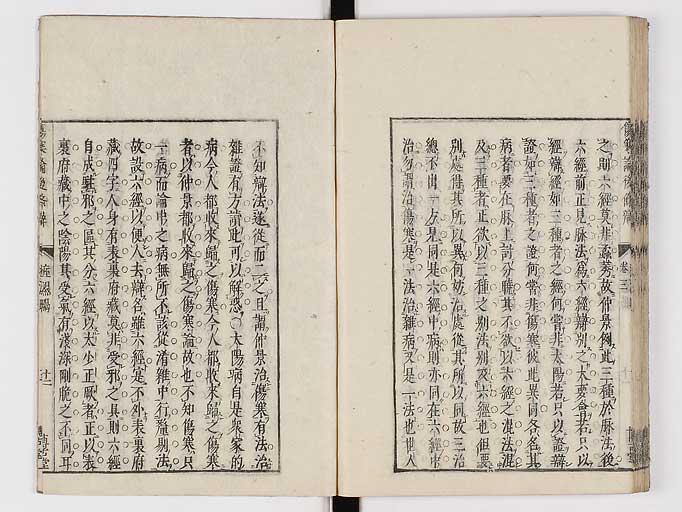 之則六經莫非盡夢故仲景例此三種於脈法後
六經前正見脈法為六經辯別之大要會若只以
經辯經如三種者之經何嘗非太陽若只以證辯
證如三種者之證何嘗非傷寒彼此異同各名其
病者要在脈上討分曉其不欲以六經之混法混
及三種者正欲以三種之別法別及六經也但要
別處得其所以異何妨治處從其所以同故三治
總不出一表是同其六經中病則亦同在六經中
治勿謂治傷寒是一法治雜病又是一法也世人
不知辯法遂從而二之且謂仲景治傷寒有法治
雜證有方讀此可以解惑○太陽病自是衆家的
病今人都收來歸之傷寒今人都收來歸之傷寒
者以仲景都收來歸之傷寒論故也不知傷寒只
一病而論中之病無所不該從淆雜中行疏別法
故設六經以便人去辯名雖六經寔不外表裏府
藏四字人身有表裏府藏莫非受邪之具則六經
自成駐邪之區其分六經以太少正厥者正以表
裏府藏中之陰陽其受氣有淺深剛脆之不同耳
傷寒論後條辯
卷三
傷寒論後條辯
痙濕暍
十二